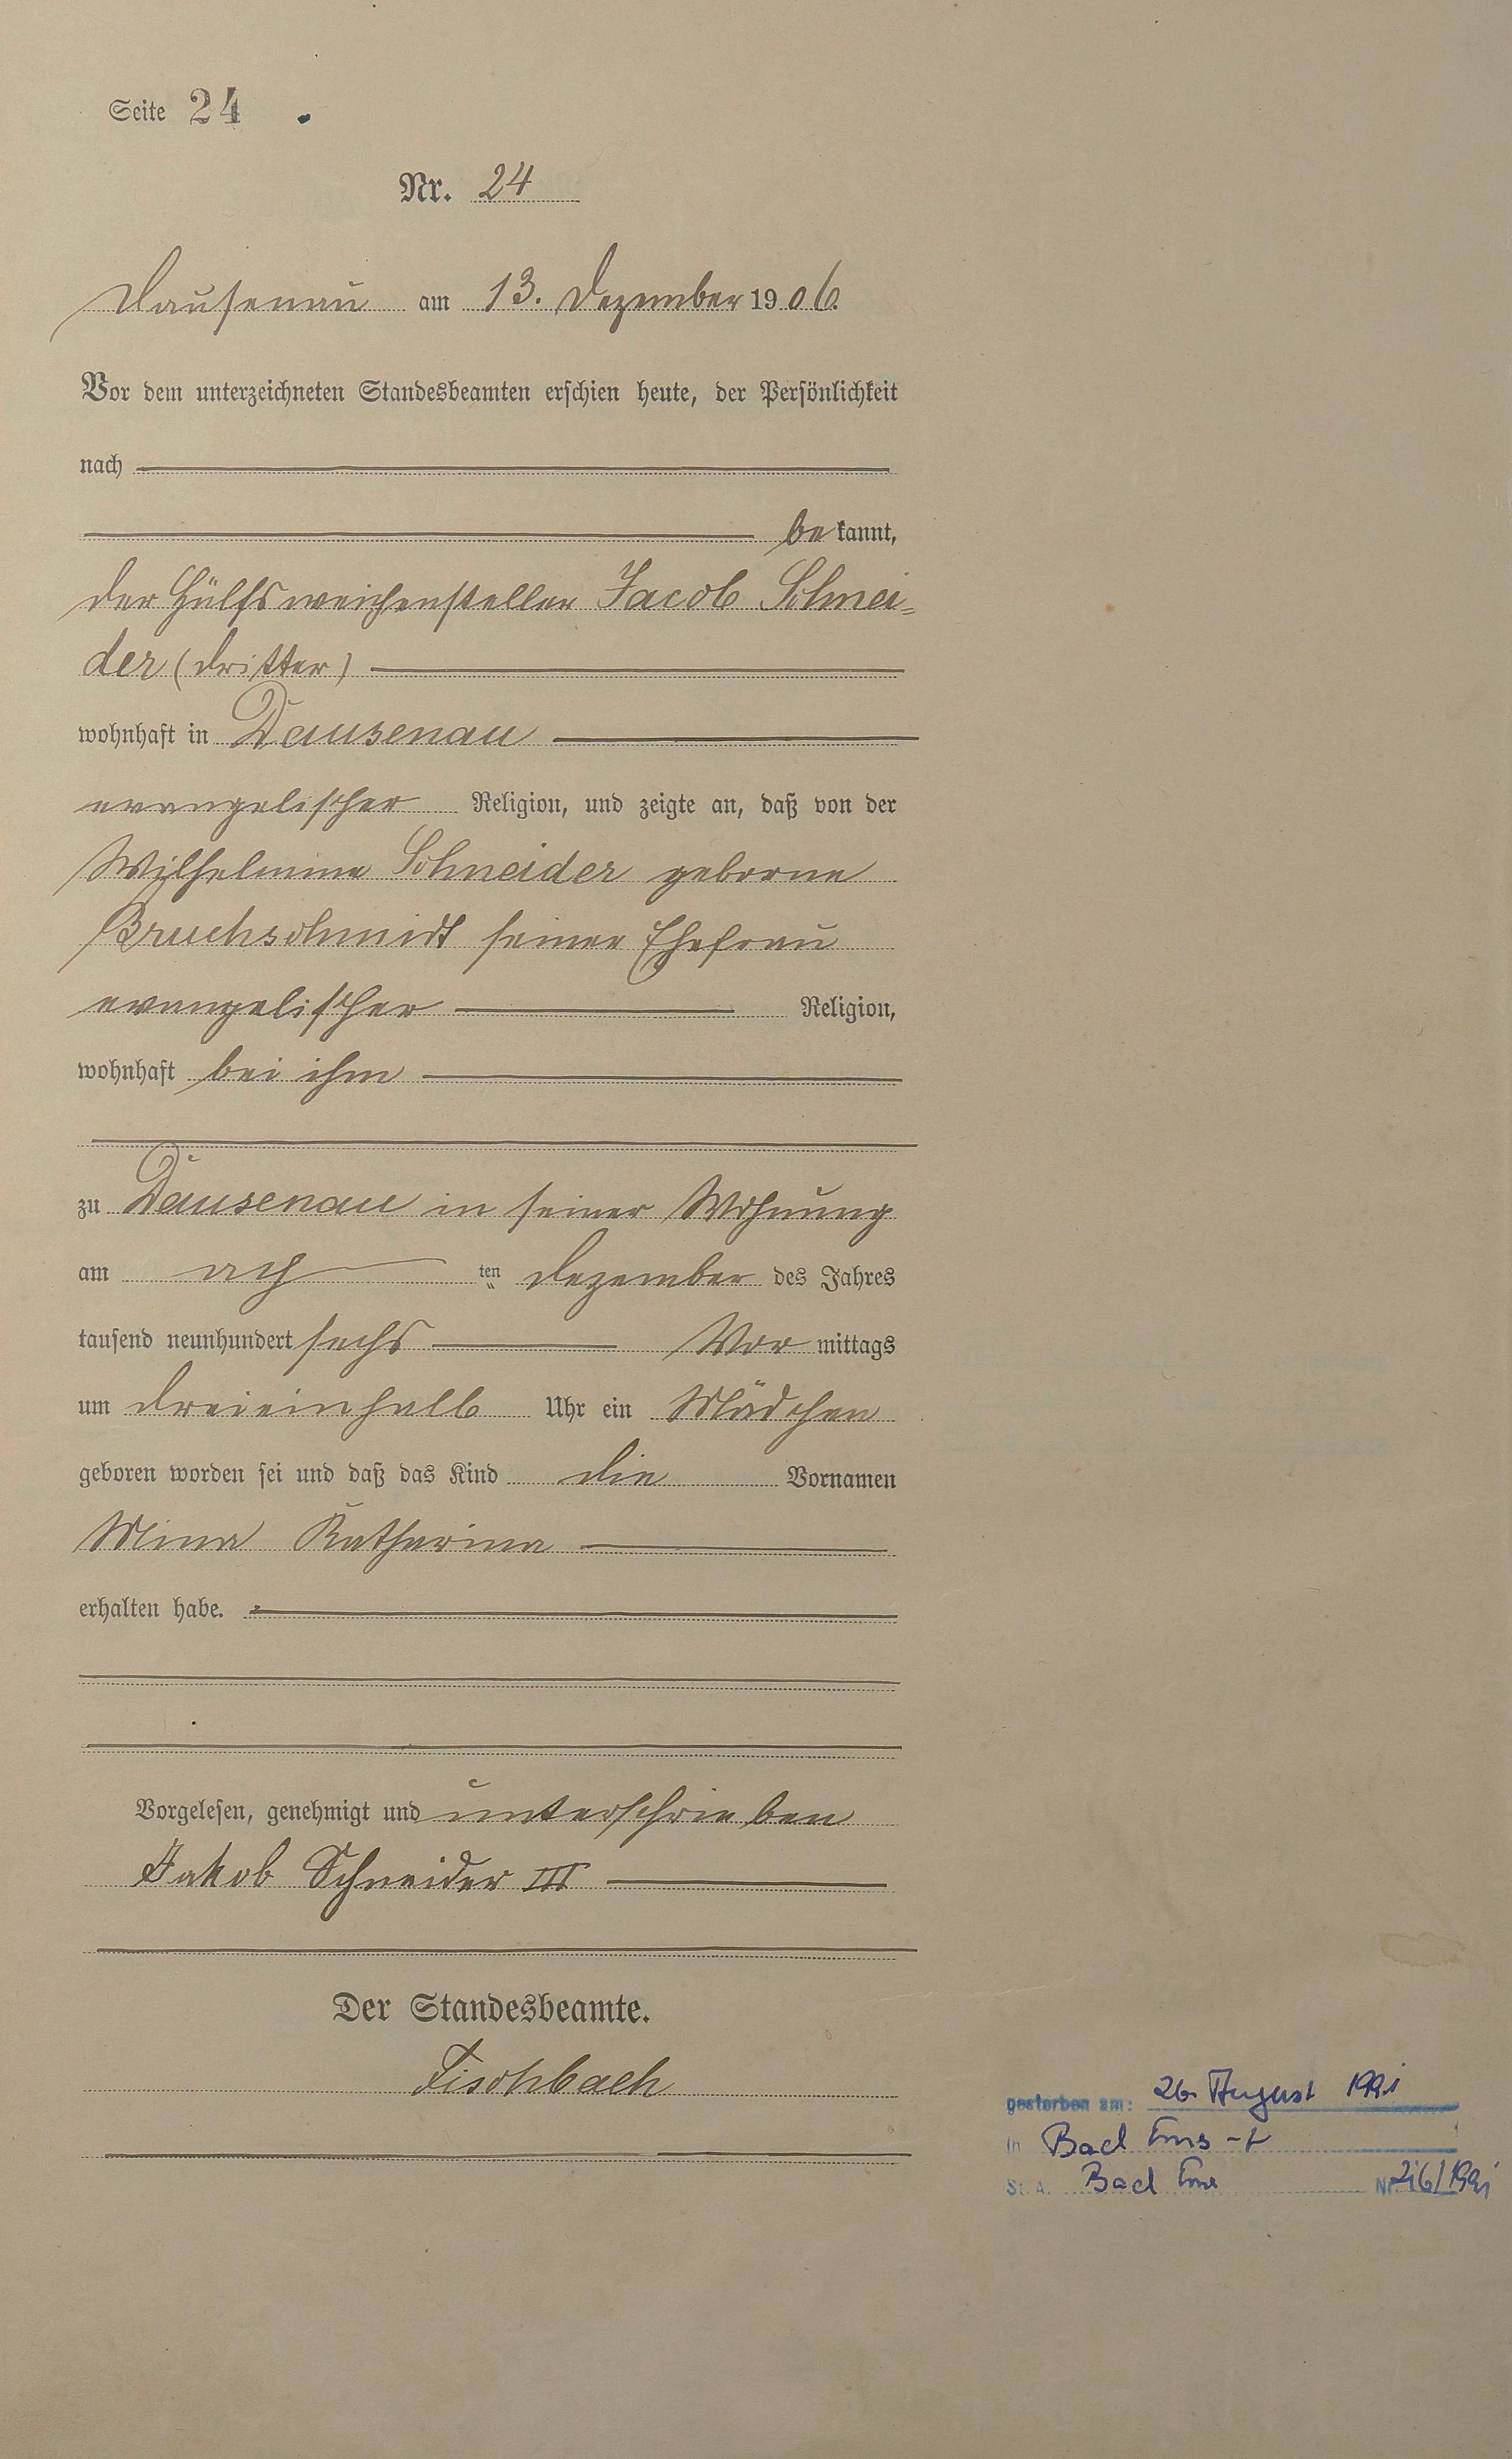 Seite 24
Nr. 24
Dausenau am 13. Dezember 1906.
Vor dem unterzeichneten Standesbeamten erschien heute, der Persönlichkeit
nach
bekannt,
der Hülfsweichensteller Jacob Schnei=
der (dritter)
wohnhaft in Dausenau
evangelischer Religion, und zeigte an, daß von der
Wilhelmine Schneider geborne
Bruchschmidt seiner Ehefrau
evangelischer Religion,
wohnhaft bei ihm
zu Dausenau in seiner Wohnung
am ach ten Dezember des Jahres
tausend neunhundert sechs Vor mittags
um dreieinhalb Uhr ein Mädchen
geboren worden sei und daß das Kind die Vornamen
Mina Katharina
erhalten habe.
Vorgelesen, genehmigt und unterschrieben
Jakob Schneider III
Der Standesbeamte.
Fischbach
gestorben am: 26. August 1991
in Bad Ems
St. A. Bad Ems Nr. 216/1991